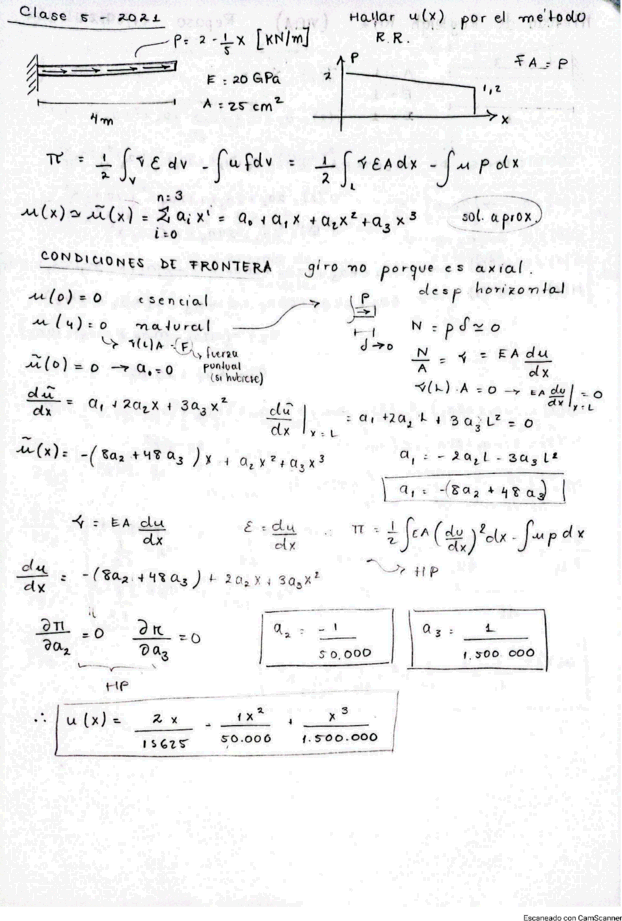 Clase 5 - 2021
Hallar u(x) por el método
R.R.
p = 2 - 1/5 x [KN/m]
E = 20 GPa
A = 25 cm²
4m
2
P
1,2
x
FA = P
π = 1/2 ∫_V σ ε dv - ∫ u f dv = 1/2 ∫_L σ ε A dx - ∫ u p dx
u(x) ≃ ũ(x) = Σ_{i=0}^{n=3} aᵢ xⁱ = a₀ + a₁x + a₂x² + a₃x³
sol. aprox.
CONDICIONES DE FRONTERA
giro no porque es axial.
desp horizontal
u(0) = 0 esencial
u(4) = 0 natural
σ(L)A - F
fuerza
puntual
(si hubiese)
P
δ → 0
N = p δ ≃ 0
N/A = σ = EA du/dx
σ(L) . A = 0 → EA du/dx |_{x=L} = 0
ũ(0) = 0 → a₀ = 0
dũ/dx = a₁ + 2a₂x + 3a₃x²
dũ/dx |_{x=L} = a₁ + 2a₂L + 3a₃L² = 0
ũ(x) = -(8a₂ + 48a₃)x + a₂x² + a₃x³
a₁ = -2a₂L - 3a₃L²
a₁ = -(8a₂ + 48a₃)
σ = EA du/dx
ε = du/dx
π = 1/2 ∫ EA (du/dx)² dx - ∫ u p dx
HP
du/dx = -(8a₂ + 48a₃) + 2a₂x + 3a₃x²
∂π/∂a₂ = 0
∂π/∂a₃ = 0
HP
a₂ = -1/50.000
a₃ = 1/1.500.000
∴ u(x) = 2x/15625 - 1x²/50.000 + x³/1.500.000
Escaneado con CamScanner